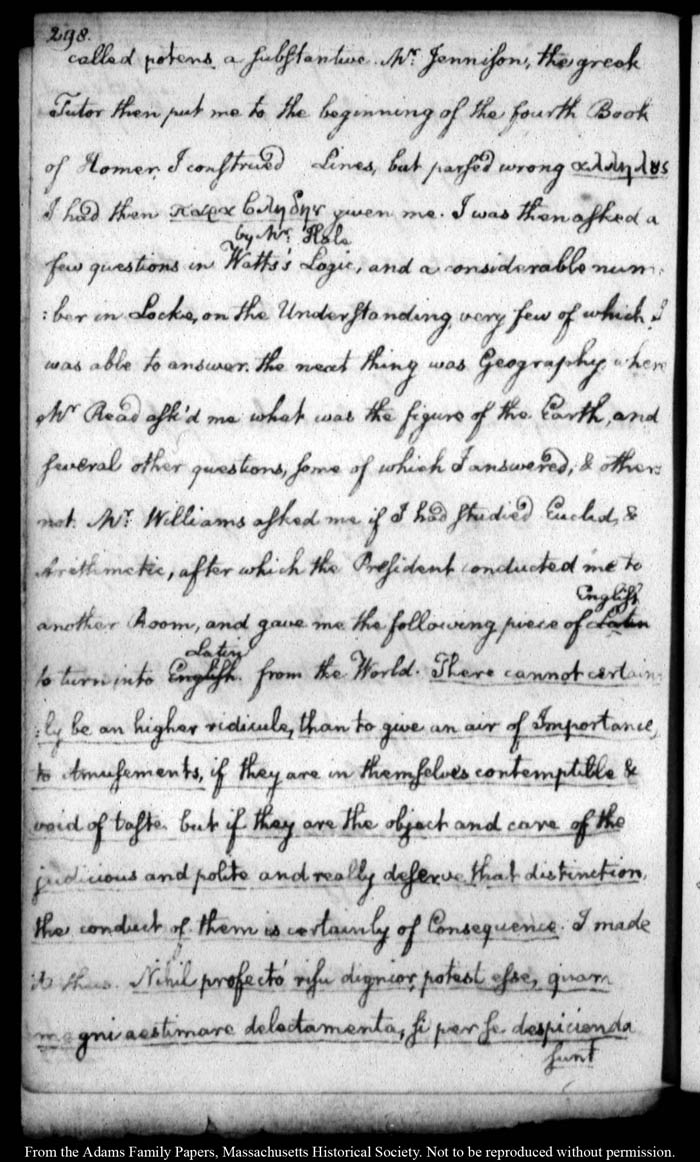 298.
called potens a substantive. Mr. Jennison, the greek
Tutor then put me to the beginning of the fourth Book
of Homer. I construed Lines, but parsed wrong αλληλȣς
I had then παρα βληδην given me. I was then asked a
by Mr. Hale
few questions in Watts's Logic, and a considerable num:
:ber in Locke, on the Understanding, very few of which I
was able to answer. the next thing was Geography, where
Mr Read ask'd me what was the figure of the Earth, and
several other questions, some of which I answered; & others
not. Mr. Williams asked me if I had studied Euclid, &
Arithmetic, after which the President conducted me to
English
another Room, and gave me the following piece of Latin
Latin
to turn into English. from the World. There cannot certain:
:ly be an higher ridicule, than to give an air of Importance,
to Amusements, if they are in themselves contemptible &
void of taste. but if they are the object and care of the
judicious and polite and really deserve that distinction,
the conduct of them is certainly of Consequence. I made
it thus. Nihil profectó risu dignior, potest esse, quam
magni aestimare delectamenta, si per se despicienda
sunt
From the Adams Family Papers, Massachusetts Historical Society. Not to be reproduced without permission.